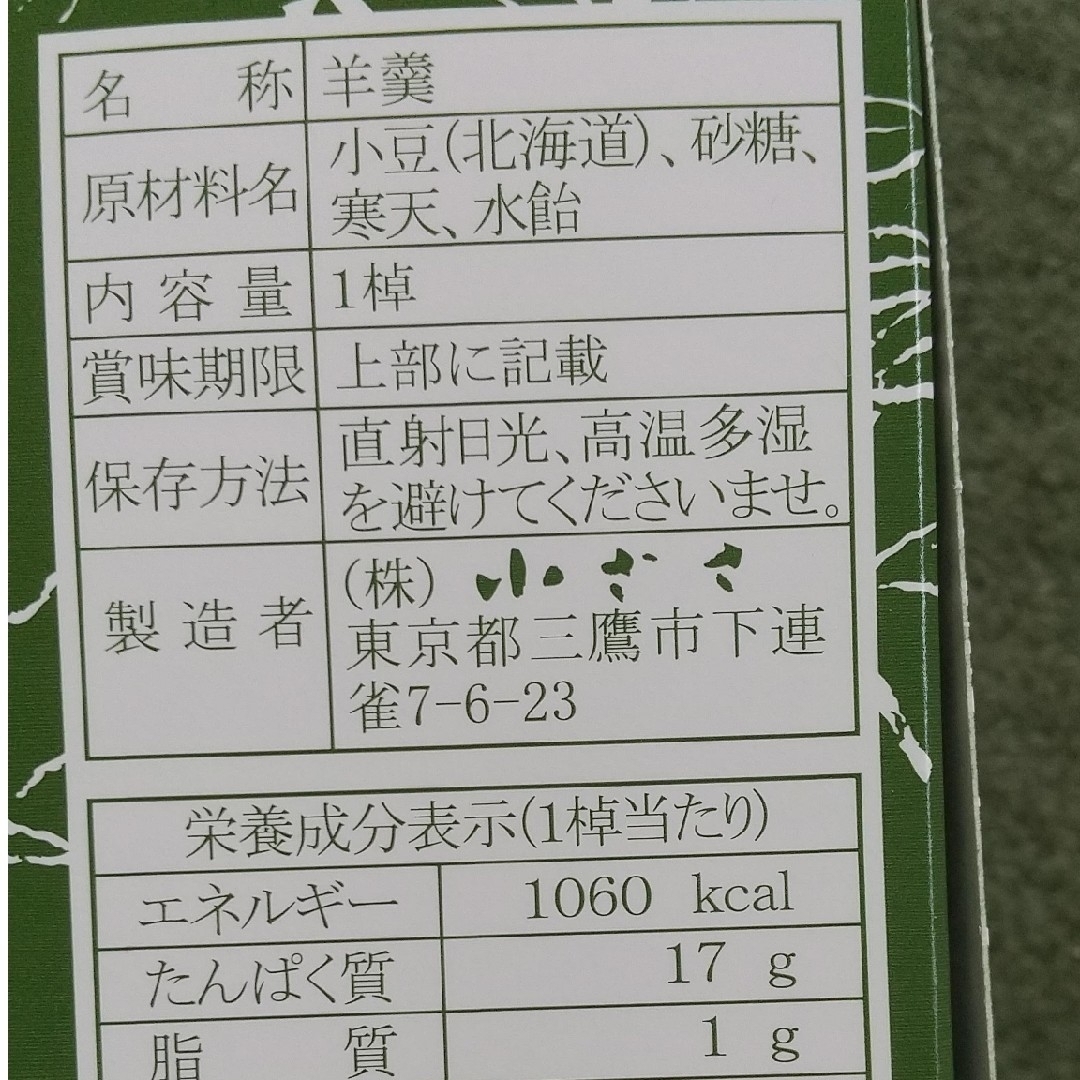 名称 羊羹
原材料名 小豆(北海道)、砂糖、
寒天、水飴
内容量 1棹
賞味期限 上部に記載
保存方法 直射日光、高温多湿
を避けてくださいませ。
製造者 (株) 小ざさ
東京都三鷹市下連
雀7-6-23
栄養成分表示(1棹当たり)
エネルギー 1060 kcal
たんぱく質 17 g
脂質 1 g